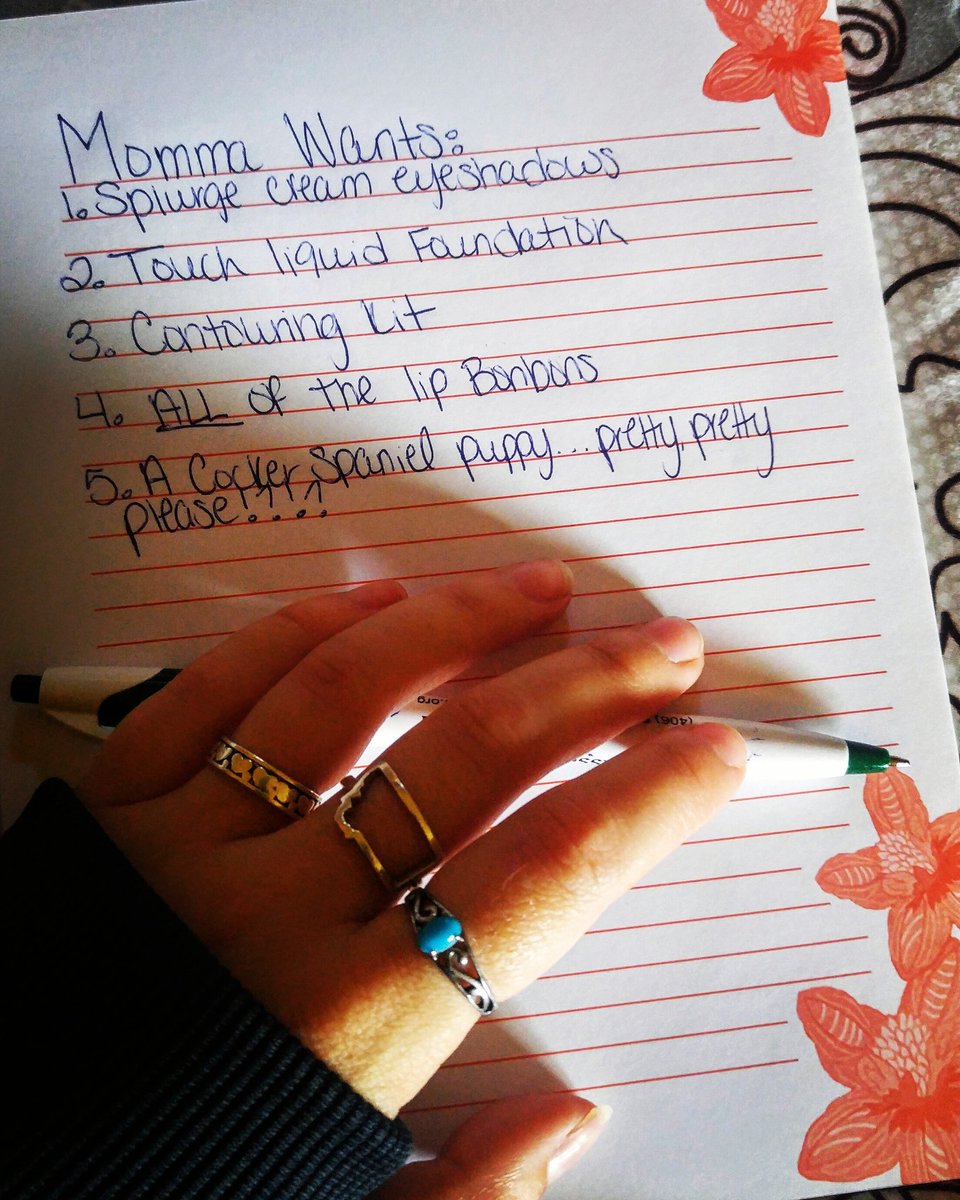 Momma Wants:
1. Splurge cream eyeshadows
2. Touch liquid Foundation
3. Contouring Kit
4. ALL of the lip Bonbons
5. A Cocker Spaniel puppy... pretty, pretty
please!!!!
.org
(406)